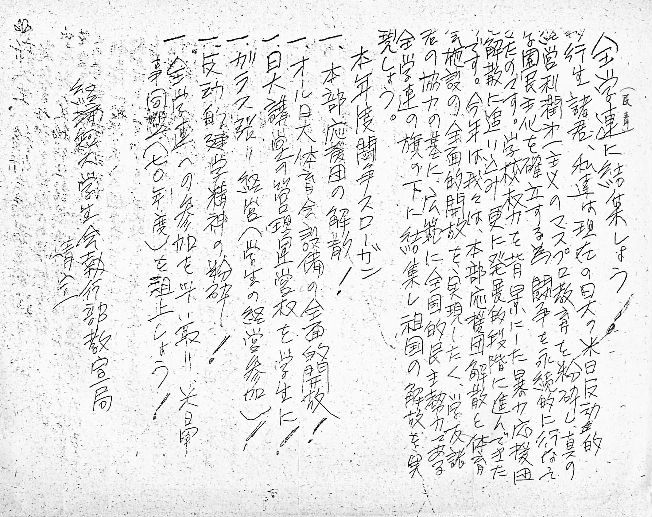 全学連に結集しよう!
(民青)
行生諸君、私達は現在の日大の米日反動的
経営利潤第一主義のマスプロ教育を粉砕し真の
学園民主化を確立する為闘争を永続的に行なって
きたのです。学校権力を背景にした暴力応援団
解散に追い込み更に発展的段階に進んできた
です。今年は我々は、本部応援団解散と体育
会施設の全面的開放を実現したく、学友諸
君の協力の基に広範に全国的民主勢力である
全学連の旗の下に結集し祖国の解放を実
現しよう。
本年度闘争スローガン
一、本部応援団の解散!
一、オール日大体育会設備の全面的開放!
一、日大講堂の管理運営権を学生に!
一、ガラス張り経営(学生の経営参加)!
一、反動的建学精神の粉砕!
一、全学連への参加を勝ち取り米日帝
同盟(七〇年度)を阻止しよう!
学生会執行部教宣局